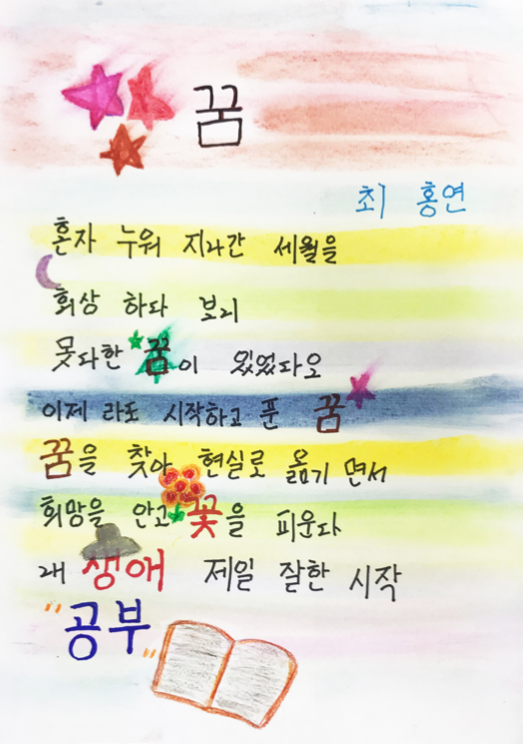 꿈
최 홍연
혼자 누워 지나간 세월을
회상 하다 보니
못다한 꿈이 있었다오
이제 라도 시작하고 푼 꿈
꿈을 찾아 현실로 옮기 면서
희망을 안고 꽃을 피운다
내 생애 제일 잘한 시작
"공부"